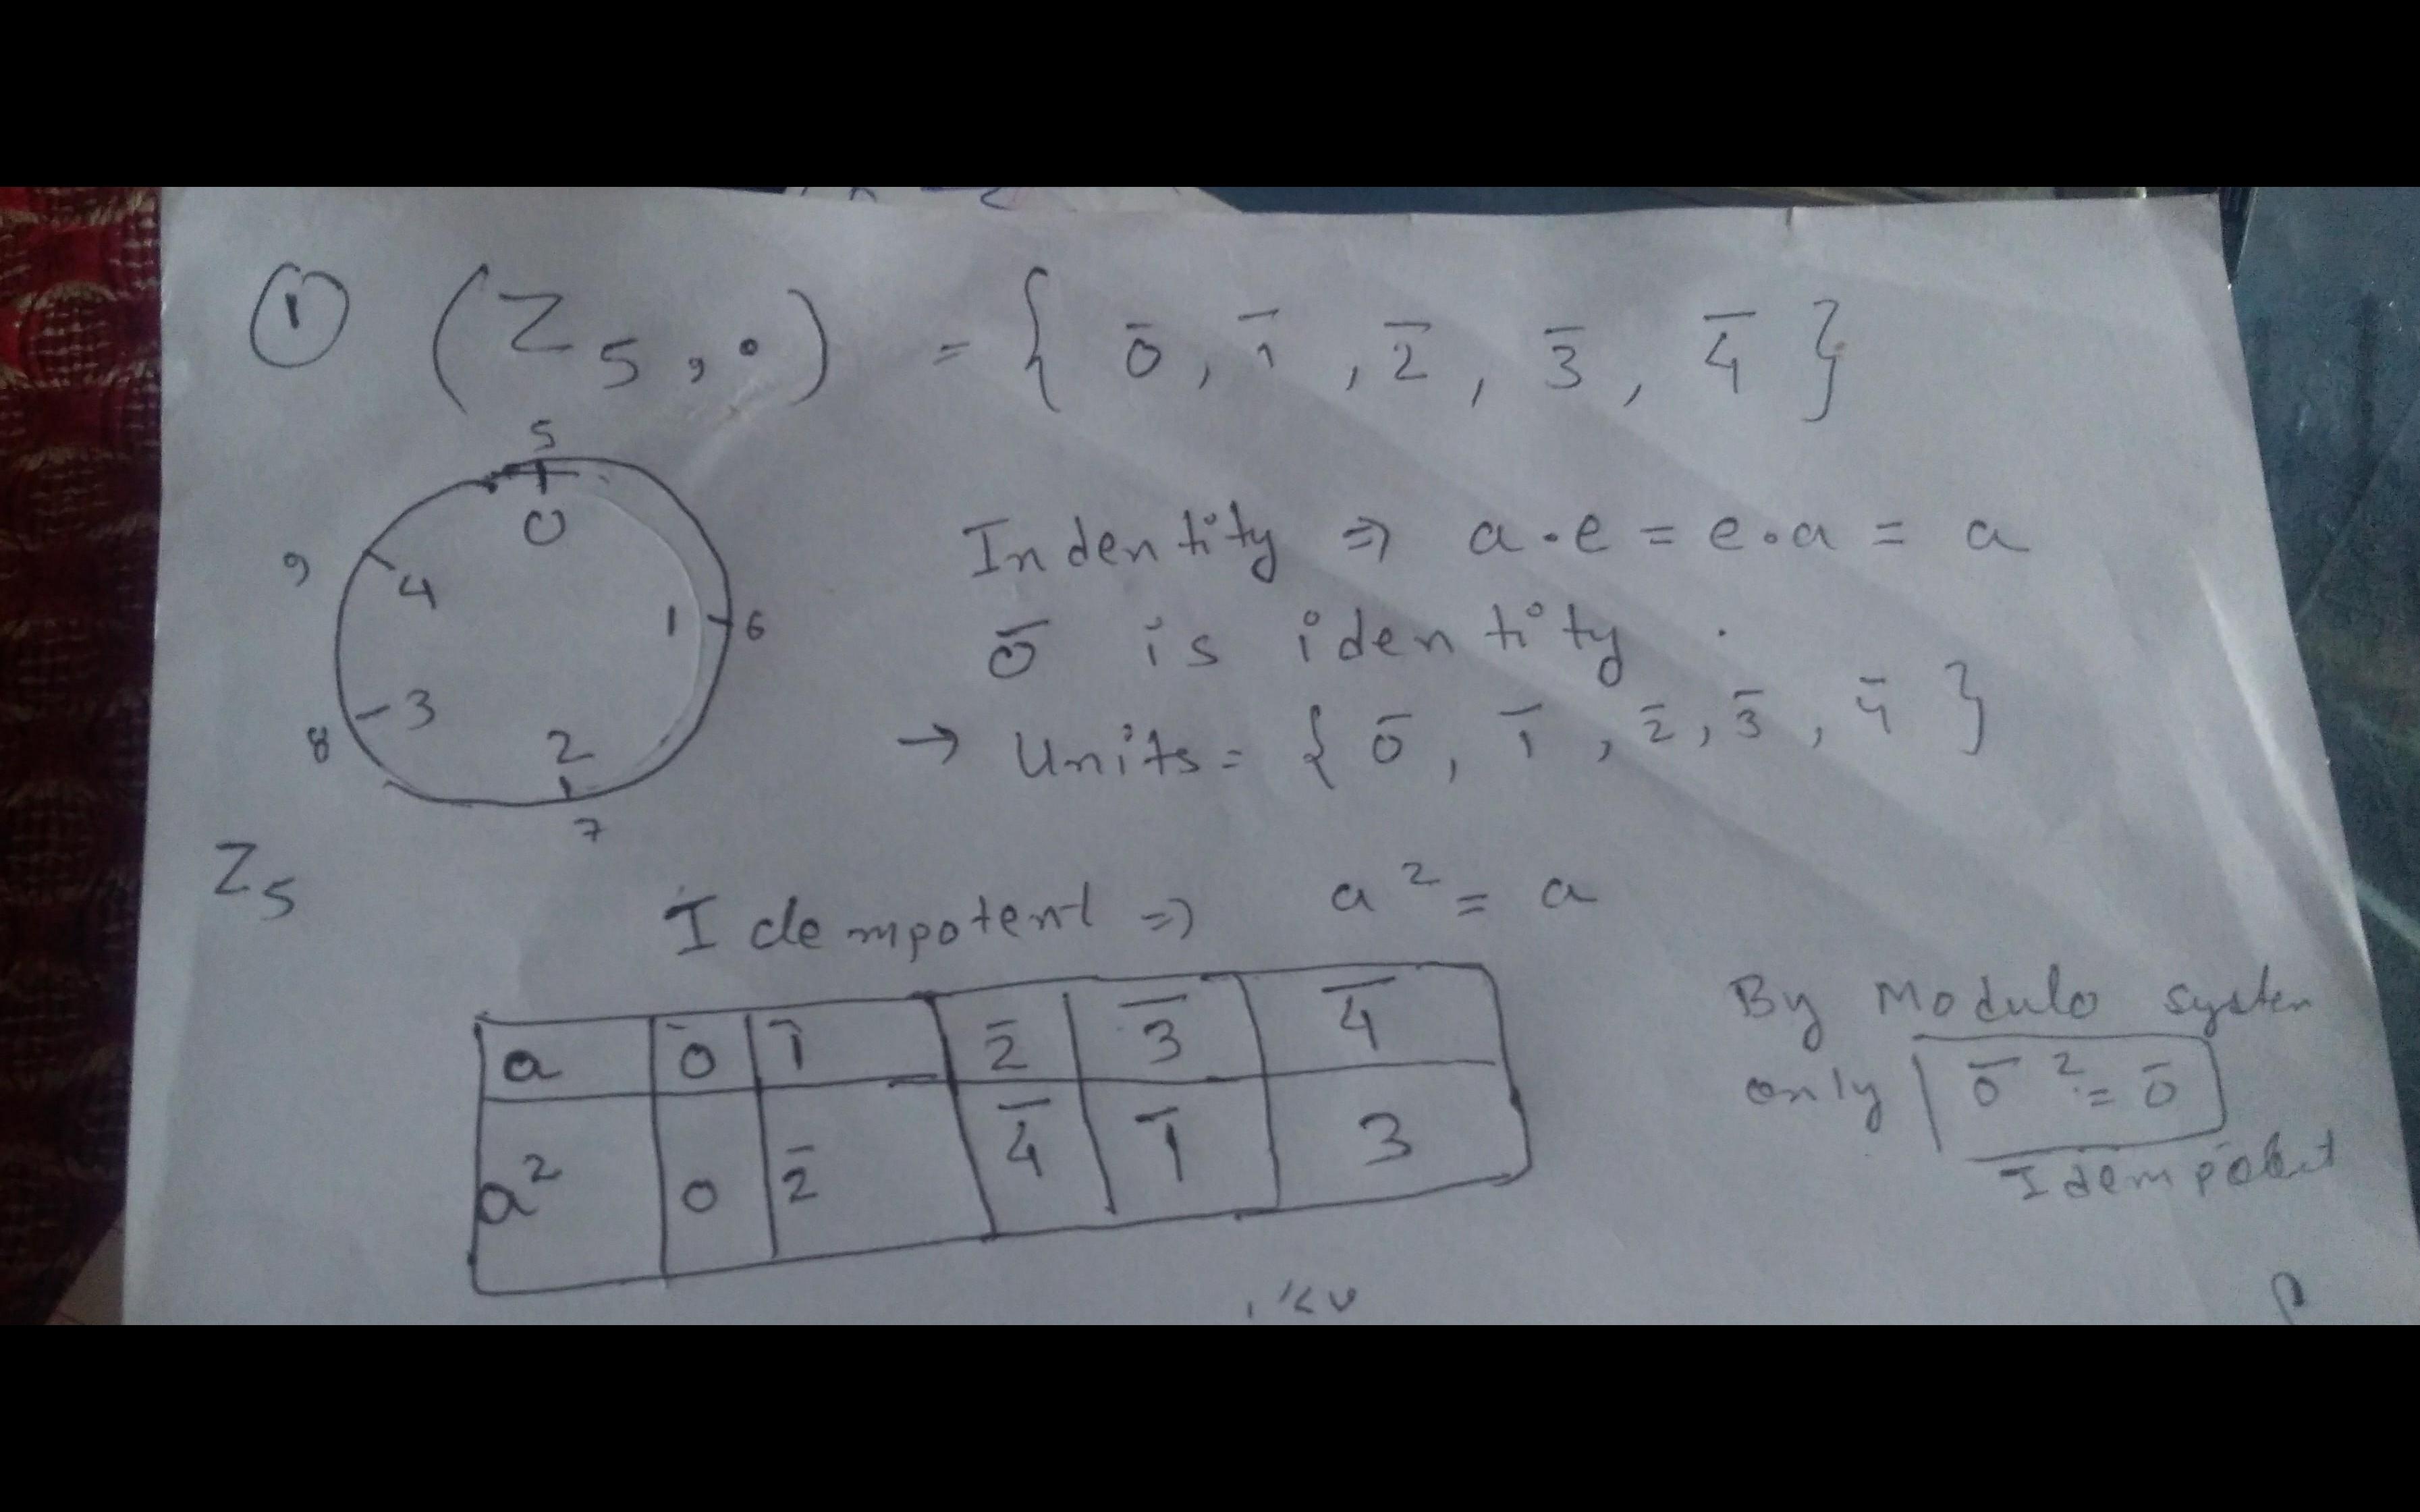 ① (Z₅, •) = { 0̄, 1̄, 2̄, 3̄, 4̄ }
5
0
9
4
1
6
3
8
2
7
Z₅
Indentity ⇒ a • e = e • a = a
0̄ is identity .
→ Units = { 0̄, 1̄, 2̄, 3̄, 4̄ }
Idempotent ⇒ a² = a
a 0̄ 1̄ 2̄ 3̄ 4̄
a² 0 2̄ 4̄ 1̄ 3
By Modulo system
only 0̄² = 0̄